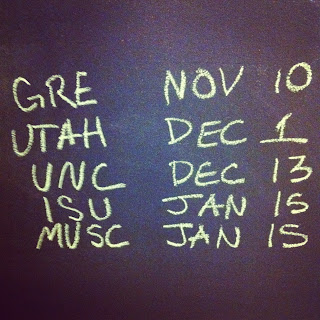 GRE NOV 10
UTAH DEC 1
UNC DEC 13
ISU JAN 15
MUSC JAN 15